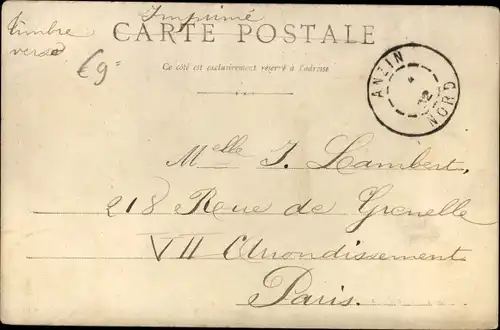 Imprimé
timbre
verso
€9
CARTE POSTALE
Ce côté est exclusivement réservé à l'adresse
ANZIN
02
NORD
Melle J. Lambert,
218 Rue de Grenelle
VII Arrondissement
Paris.